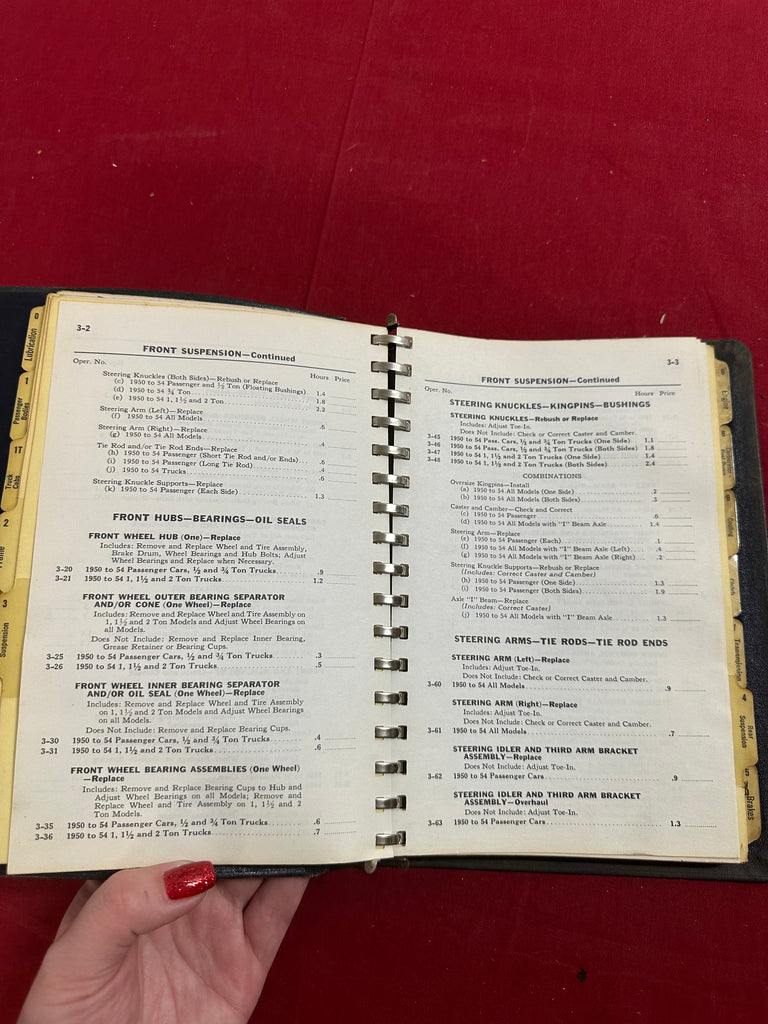 0
Lubrication
1
Passenger
Bodies
1T
Truck
Cabs
2
Frame
3
Suspension
3-2
FRONT SUSPENSION—Continued
Oper. No.
Hours Price
Steering Knuckles (Both Sides)—Rebush or Replace
(c) 1950 to 54 Passenger and ½ Ton (Floating Bushings) 1.4
(d) 1950 to 54 ¾ Ton 1.8
(e) 1950 to 54 1, 1½ and 2 Ton 2.2
Steering Arm (Left)—Replace
(f) 1950 to 54 All Models .6
Steering Arm (Right)—Replace
(g) 1950 to 54 All Models .4
Tie Rod and/or Tie Rod Ends—Replace
(h) 1950 to 54 Passenger (Short Tie Rod and/or Ends) .6
(i) 1950 to 54 Passenger (Long Tie Rod)
(j) 1950 to 54 Trucks
Steering Knuckle Supports—Replace
(k) 1950 to 54 Passenger (Each Side) 1.3
FRONT HUBS—BEARINGS—OIL SEALS
FRONT WHEEL HUB (One)—Replace
Includes: Remove and Replace Wheel and Tire Assembly,
Brake Drum, Wheel Bearings and Hub Bolts; Adjust
Wheel Bearings and Replace when Necessary.
3-20 1950 to 54 Passenger Cars, ½ and ¾ Ton Trucks .9
3-21 1950 to 54 1, 1½ and 2 Ton Trucks 1.2
FRONT WHEEL OUTER BEARING SEPARATOR
AND/OR CONE (One Wheel)—Replace
Includes: Remove and Replace Wheel and Tire Assembly on
1, 1½ and 2 Ton Models and Adjust Wheel Bearings on
all Models.
Does Not Include: Remove and Replace Inner Bearing,
Grease Retainer or Bearing Cups.
3-25 1950 to 54 Passenger Cars, ½ and ¾ Ton Trucks .3
3-26 1950 to 54 1, 1½ and 2 Ton Trucks .5
FRONT WHEEL INNER BEARING SEPARATOR
AND/OR OIL SEAL (One Wheel)—Replace
Includes: Remove and Replace Wheel and Tire Assembly
on 1, 1½ and 2 Ton Models and Adjust Wheel Bearings
on all Models.
Does Not Include: Remove and Replace Bearing Cups.
3-30 1950 to 54 Passenger Cars, ½ and ¾ Ton Trucks .4
3-31 1950 to 54 1, 1½ and 2 Ton Trucks .6
FRONT WHEEL BEARING ASSEMBLIES (One Wheel)
—Replace
Includes: Remove and Replace Bearing Cups to Hub and
Adjust Wheel Bearings on all Models; Remove and
Replace Wheel and Tire Assembly on 1, 1½ and 2
Ton Models.
3-35 1950 to 54 Passenger Cars, ½ and ¾ Ton Trucks .6
3-36 1950 to 54 1, 1½ and 2 Ton Trucks .7
3-3
FRONT SUSPENSION—Continued
Oper. No.
Hours Price
STEERING KNUCKLES—KINGPINS—BUSHINGS
STEERING KNUCKLES—Rebush or Replace
Includes: Adjust Toe-In.
Does Not Include: Check or Correct Caster and Camber.
3-45 1950 to 54 Pass. Cars, ½ and ¾ Ton Trucks (One Side) 1.1
3-46 1950 to 54 Pass. Cars, ½ and ¾ Ton Trucks (Both Sides) 1.8
3-47 1950 to 54 1, 1½ and 2 Ton Trucks (One Side) 1.4
3-48 1950 to 54 1, 1½ and 2 Ton Trucks (Both Sides) 2.4
COMBINATIONS
Oversize Kingpins—Install
(a) 1950 to 54 All Models (One Side) .2
(b) 1950 to 54 All Models (Both Sides) .3
Caster and Camber—Check and Correct
(c) 1950 to 54 Passenger .6
(d) 1950 to 54 All Models with "I" Beam Axle 1.4
Steering Arm—Replace
(e) 1950 to 54 Passenger (Each) .1
(f) 1950 to 54 All Models with "I" Beam Axle (Left) .4
(g) 1950 to 54 All Models with "I" Beam Axle (Right) .2
Steering Knuckle Supports—Rebush or Replace
(Includes: Correct Caster and Camber)
(h) 1950 to 54 Passenger (One Side) 1.3
(i) 1950 to 54 Passenger (Both Sides) 1.9
Axle "I" Beam—Replace
(Includes: Correct Caster)
(j) 1950 to 54 All Models with "I" Beam Axle 1.3
STEERING ARMS—TIE RODS—TIE ROD ENDS
STEERING ARM (Left)—Replace
Includes: Adjust Toe-In.
Does Not Include: Check or Correct Caster and Camber.
3-60 1950 to 54 All Models .9
STEERING ARM (Right)—Replace
Includes: Adjust Toe-In.
Does Not Include: Check or Correct Caster and Camber.
3-61 1950 to 54 All Models .7
STEERING IDLER AND THIRD ARM BRACKET
ASSEMBLY—Replace
Does Not Include: Adjust Toe-In.
3-62 1950 to 54 Passenger Cars .9
STEERING IDLER AND THIRD ARM BRACKET
ASSEMBLY—Overhaul
Does Not Include: Adjust Toe-In.
3-63 1950 to 54 Passenger Cars 1.3
Cooling
Clutch
Transmission
4
Rear
Suspension
5
Brakes